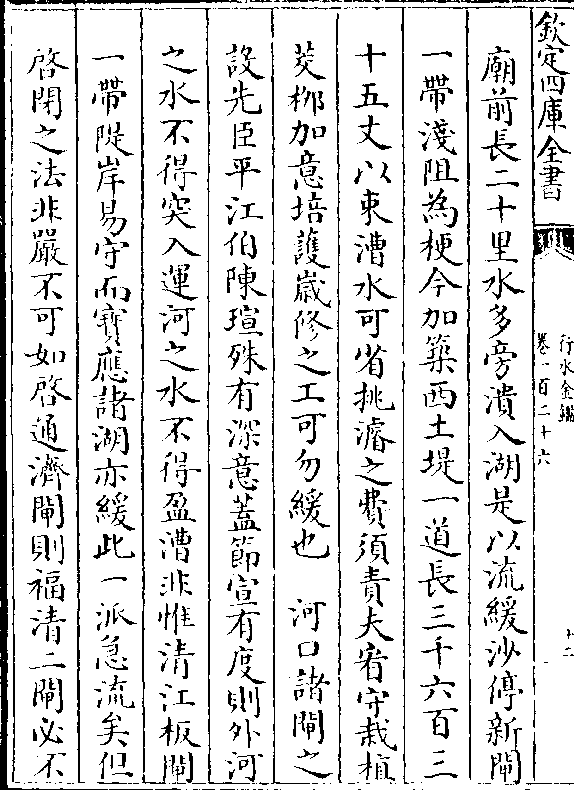 欽定四庫全書
行水金鑑
卷一百二十六
十二
廟前長二十里水多旁潰入湖是以流緩沙停新閘
一帶淺阻為梗今加築西土堤一道長三千六百三
十五丈以束漕水可省挑濬之費須責夫看守栽植
茭柳加意培護歲修之工可勿緩也　河口諸閘之
設先臣平江伯陳瑄殊有深意蓋節宣有度則外河
之水不得突入運河之水不得盈漕非惟清江板閘
一帶隄岸易守而寶應諸湖亦緩此一派急流矣但
啓閉之法非嚴不可如啓通濟閘則福清二閘必不